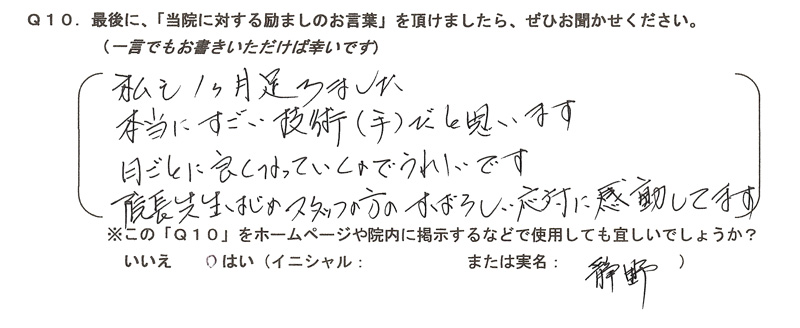 Q10．最後に、「当院に対する励ましのお言葉」を頂けましたら、ぜひお聞かせください。
（一言でもお書きいただけば幸いです）
私も1ヶ月足らずました
本当にすごい技術（手）だと思います
日ごとに良くなっていくのでうれしいです
院長先生はじめスタッフの方のすばらしい応対に感動してます
※この「Q10」をホームページや院内に掲示するなどで使用しても宜しいでしょうか？
いいえ　○はい（イニシャル：　　　　　または実名：　静野　）